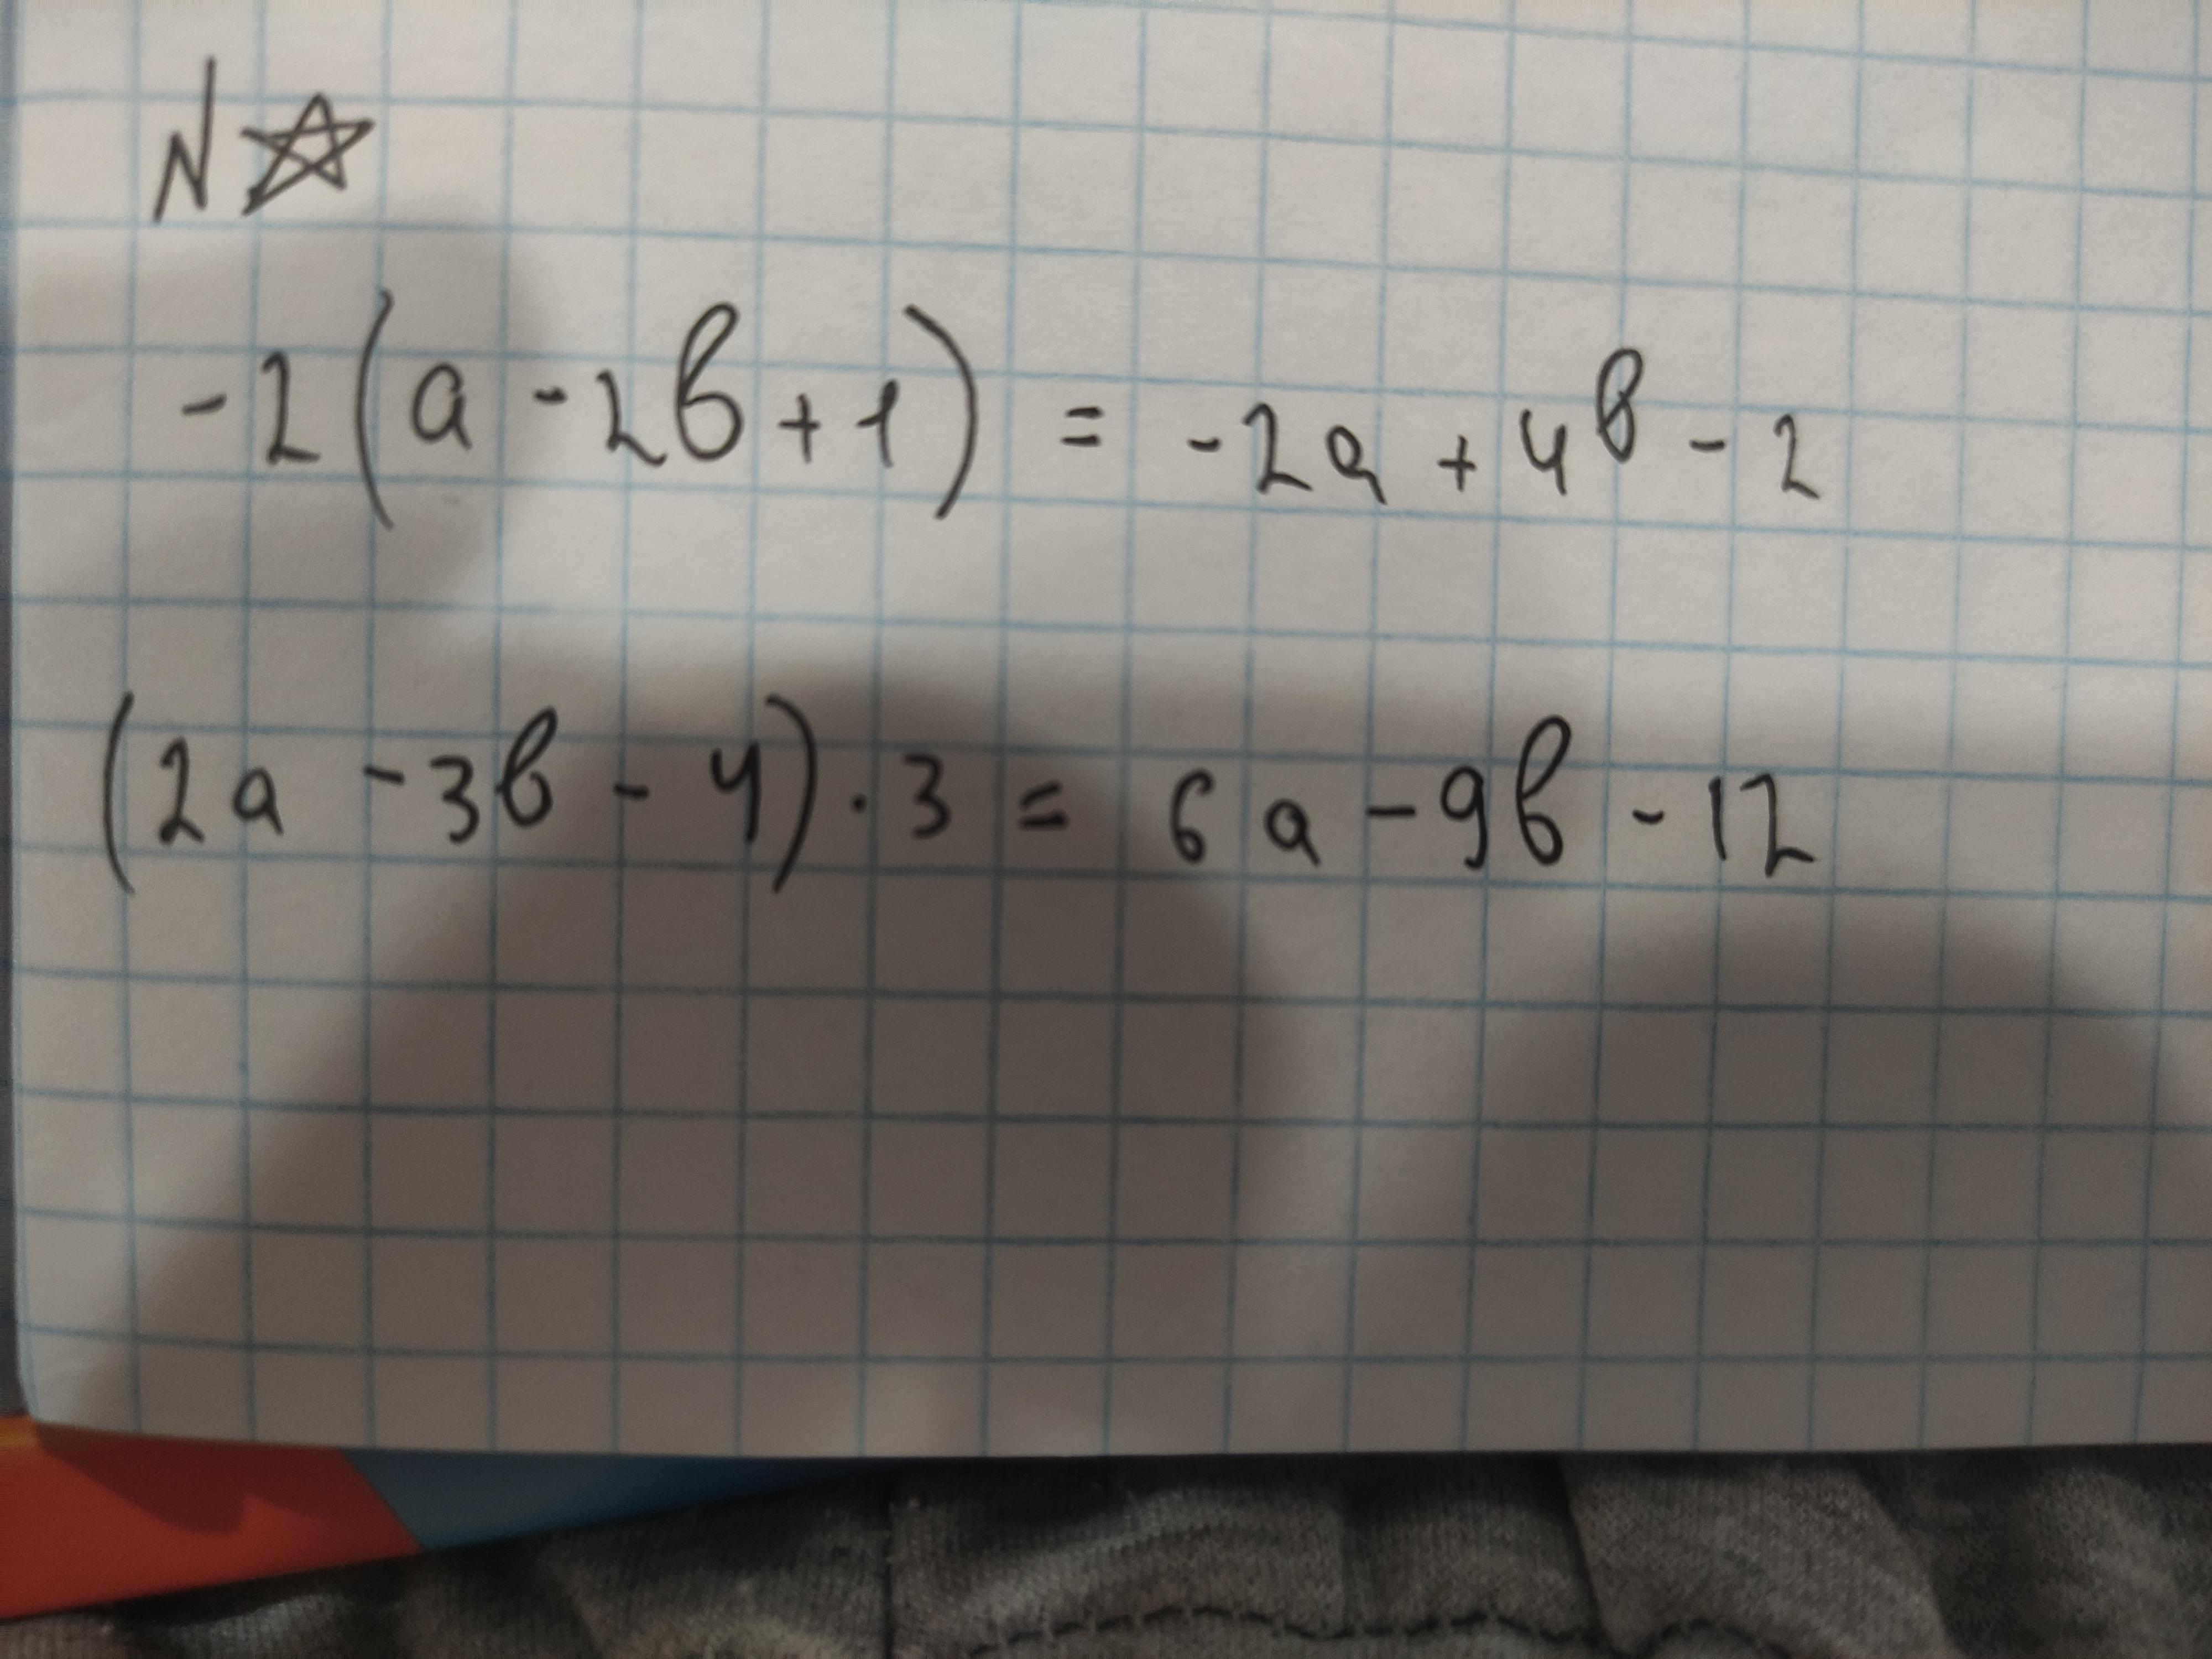 N☆
-2(a - 2b + 1) = -2a + 4b - 2
(2a - 3b - 4) · 3 = 6a - 9b - 12